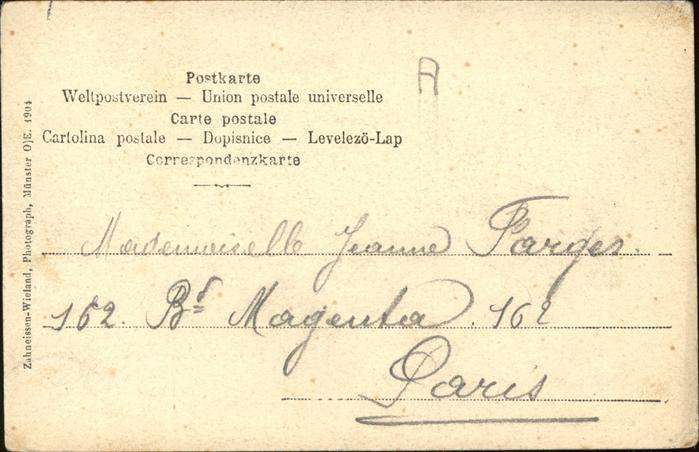 Postkarte
Weltpostverein — Union postale universelle
Carte postale
Cartolina postale — Dopisnice — Levelezö-Lap
Correspondenzkarte
A
Zahneissen-Wieland, Photograph, Münster O/E. 1904
Mademoiselle Jeanne Farges.
162. Bd Magenta. 162
Paris